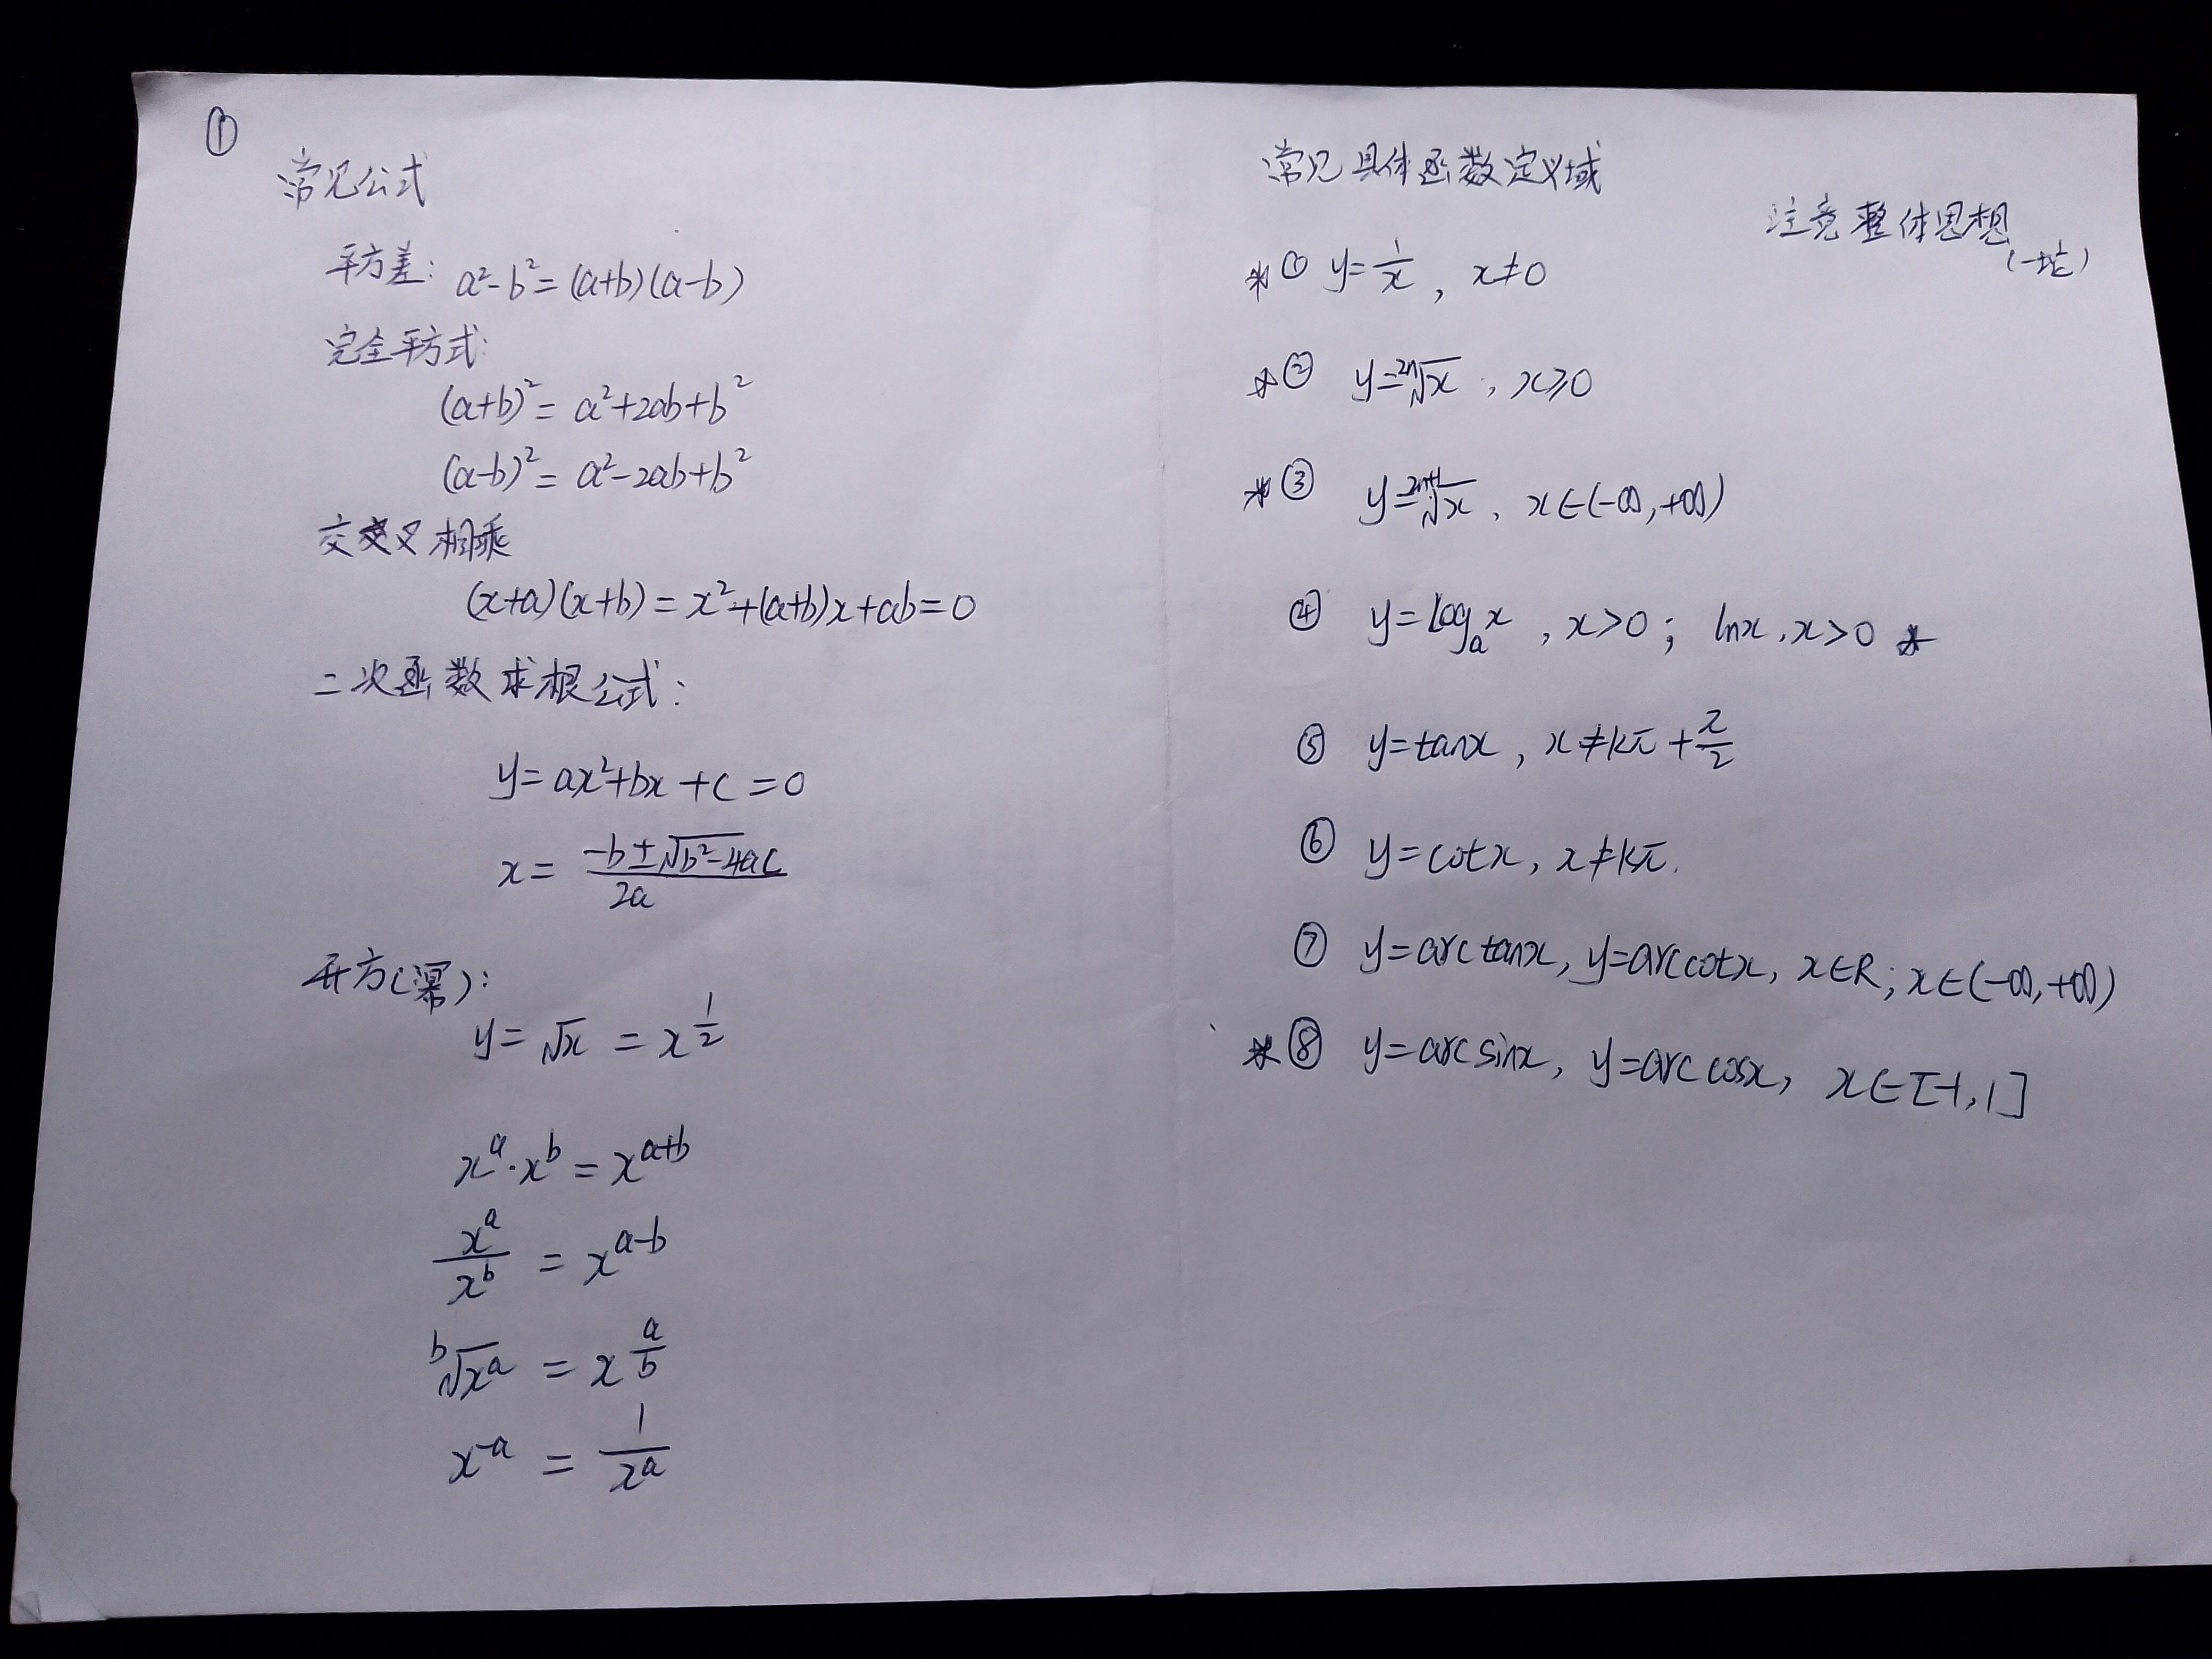 ①
常见公式
平方差: a²-b²=(a+b)(a-b)
完全平方式:
(a+b)²= a²+2ab+b²
(a-b)²= a²-2ab+b²
交叉相乘
(x+a)(x+b)=x²+(a+b)x+ab=0
二次函数求根公式:
y=ax²+bx+c=0
x= (-b±√(b²-4ac))/(2a)
开方(幂):
y=√x = x^(1/2)
x^a·x^b=x^(a+b)
x^a/x^b = x^(a-b)
^b√(x^a) = x^(a/b)
x^(-a) = 1/x^a
常见具体函数定义域
注意整体思想
(一坨)
* ① y=1/x, x≠0
* ② y=^(2n)√x, x≥0
* ③ y=^(2n+1)√x, x∈(-∞,+∞)
④ y=log_a x, x>0; lnx, x>0 *
⑤ y=tanx, x≠kπ+π/2
⑥ y=cotx, x≠kπ.
⑦ y=arctanx, y=arccotx, x∈R; x∈(-∞,+∞)
* ⑧ y=arcsinx, y=arccosx, x∈[-1,1]